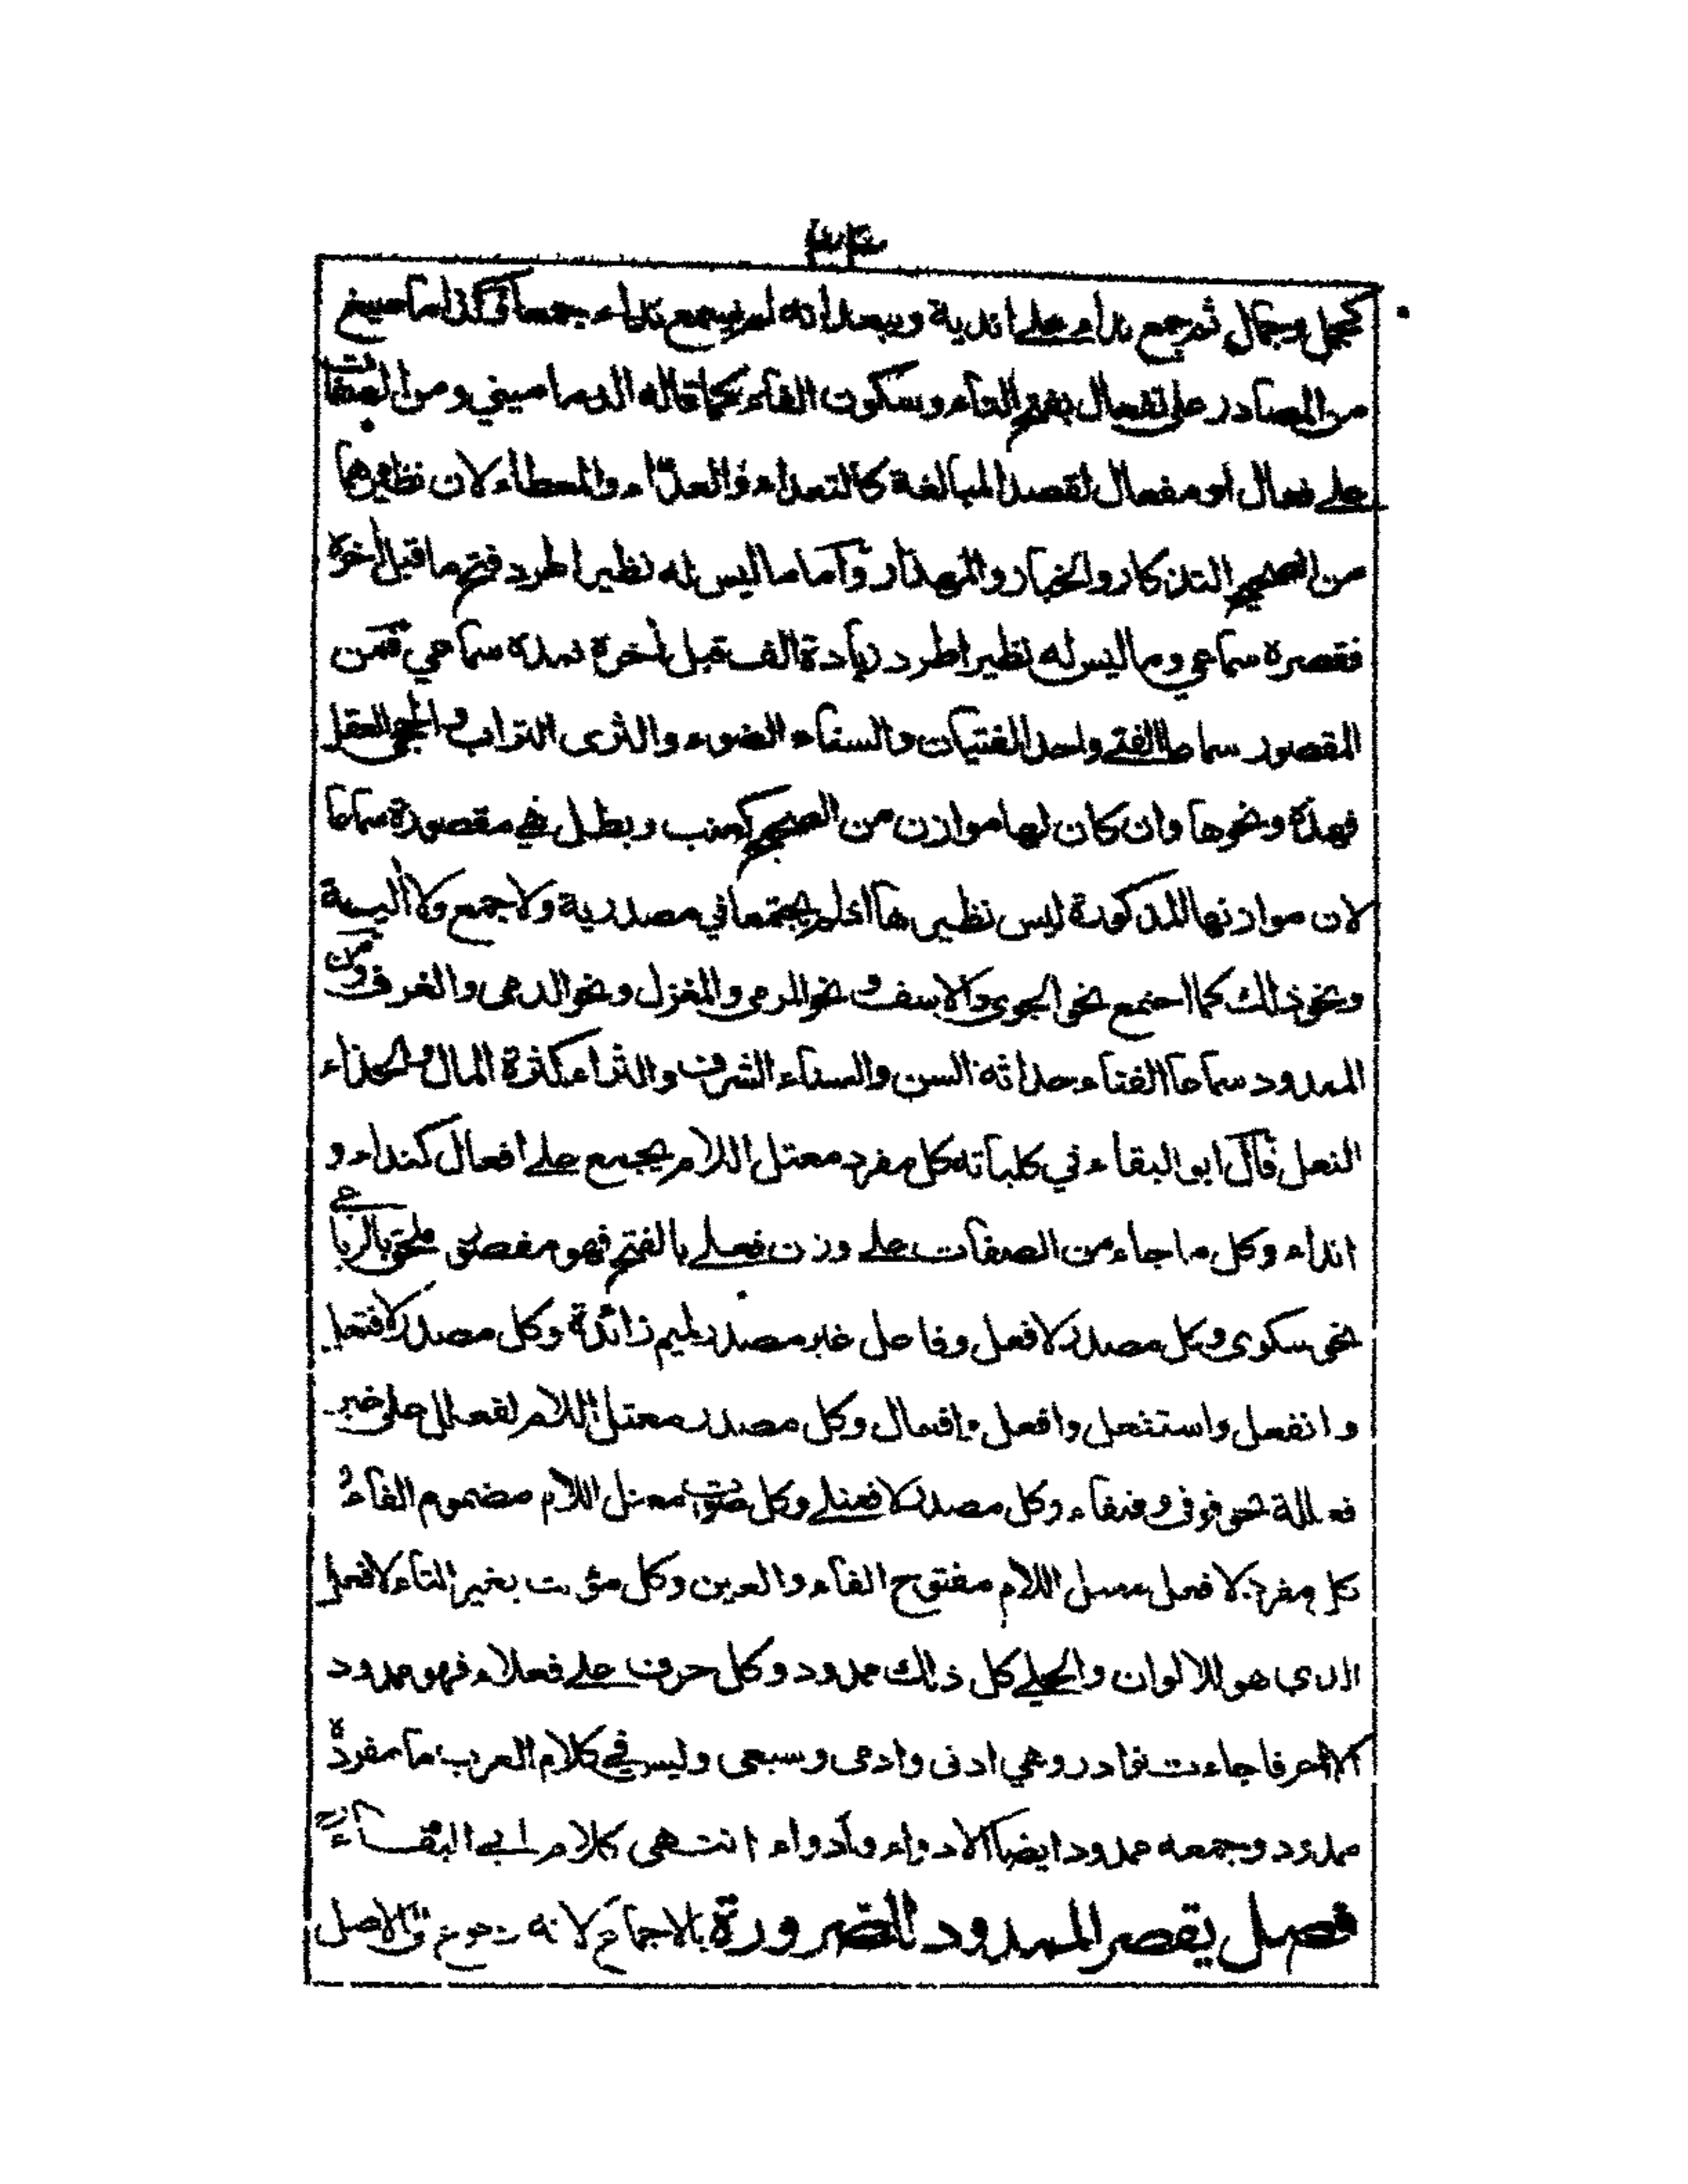 كجمل وجمال ثم جمع نداء على اندية ويبعده انه لم يسمع نداء جمعا وكذا ما صيغ
من المصادر على تفعال بفتح التاء وسكون الفاء كما قاله الدماميني ومن الصفات
على فعال او مفعال لقصد المبالغة كالتعداء والعدّاء والمعطاء لان نظيرهما
من الصحيح التذكار والخباز والمهذار واما ما ليس له نظير اطرد فتح ما قبل اخره
فقصره سماعي وما ليس له نظير اطرد زيادة الف قبل اخره فمده سماعي فمن
المقصور سماعا الفتى واحد الفتيان والسناء الضوء والثرى التراب والحجى العقل
فهذه ونحوها وان كان لها موازن من الصحيح كعنب وبطل فهي مقصورة سماعا
لان موازنها المذكورة ليس نظيرها اذ لم يجتمعا في مصدرية ولا جمع ولا آلية
ونحو ذلك كما اجتمع نحو الجوى والاسف ونحو المرمى والمغزل ونحو الدمى والغرف ومن
الممدود سماعا الفتاء حداثة السن والسناء الشرف والثراء كثرة المال والحذاء
النعل قال ابو البقاء في كلياته كل مفرد معتل اللام يجمع على افعال كنداء و
انداء وكل ما جاء من الصفات على وزن فعلى بالفتح فهو مقصور ملحق بالرباعي
نحو سكرى وكل مصدر لافعل وفاعل غير مصدر بميم زائدة وكل مصدر لافتعل
وانفعل واستفعل وافعل وافعال وكل مصدر معتل اللام لفعلل على غير
فعللة نحو وقيقاء وكل مصدر لافعنلى وكل صوت معتل اللام مضموم الفاء و
كل مفرد لافعل معتل اللام مفتوح الفاء والعين وكل مؤنث بغير التاء لافعل
الذي هو للالوان والحلى كل ذلك ممدود وكل حرف على فعلاء فهو ممدود
الا احرفا جاءت نوادر وهي ادنى وادمى وسبعى وليس في كلام العرب ما مفرده
ممدود وجمعه ممدود ايضا الا دواء وادواء انتهى كلام ابي البقاء
فصل يقصر الممدود للضرورة بالاجماع لانه رجوع الى الاصل